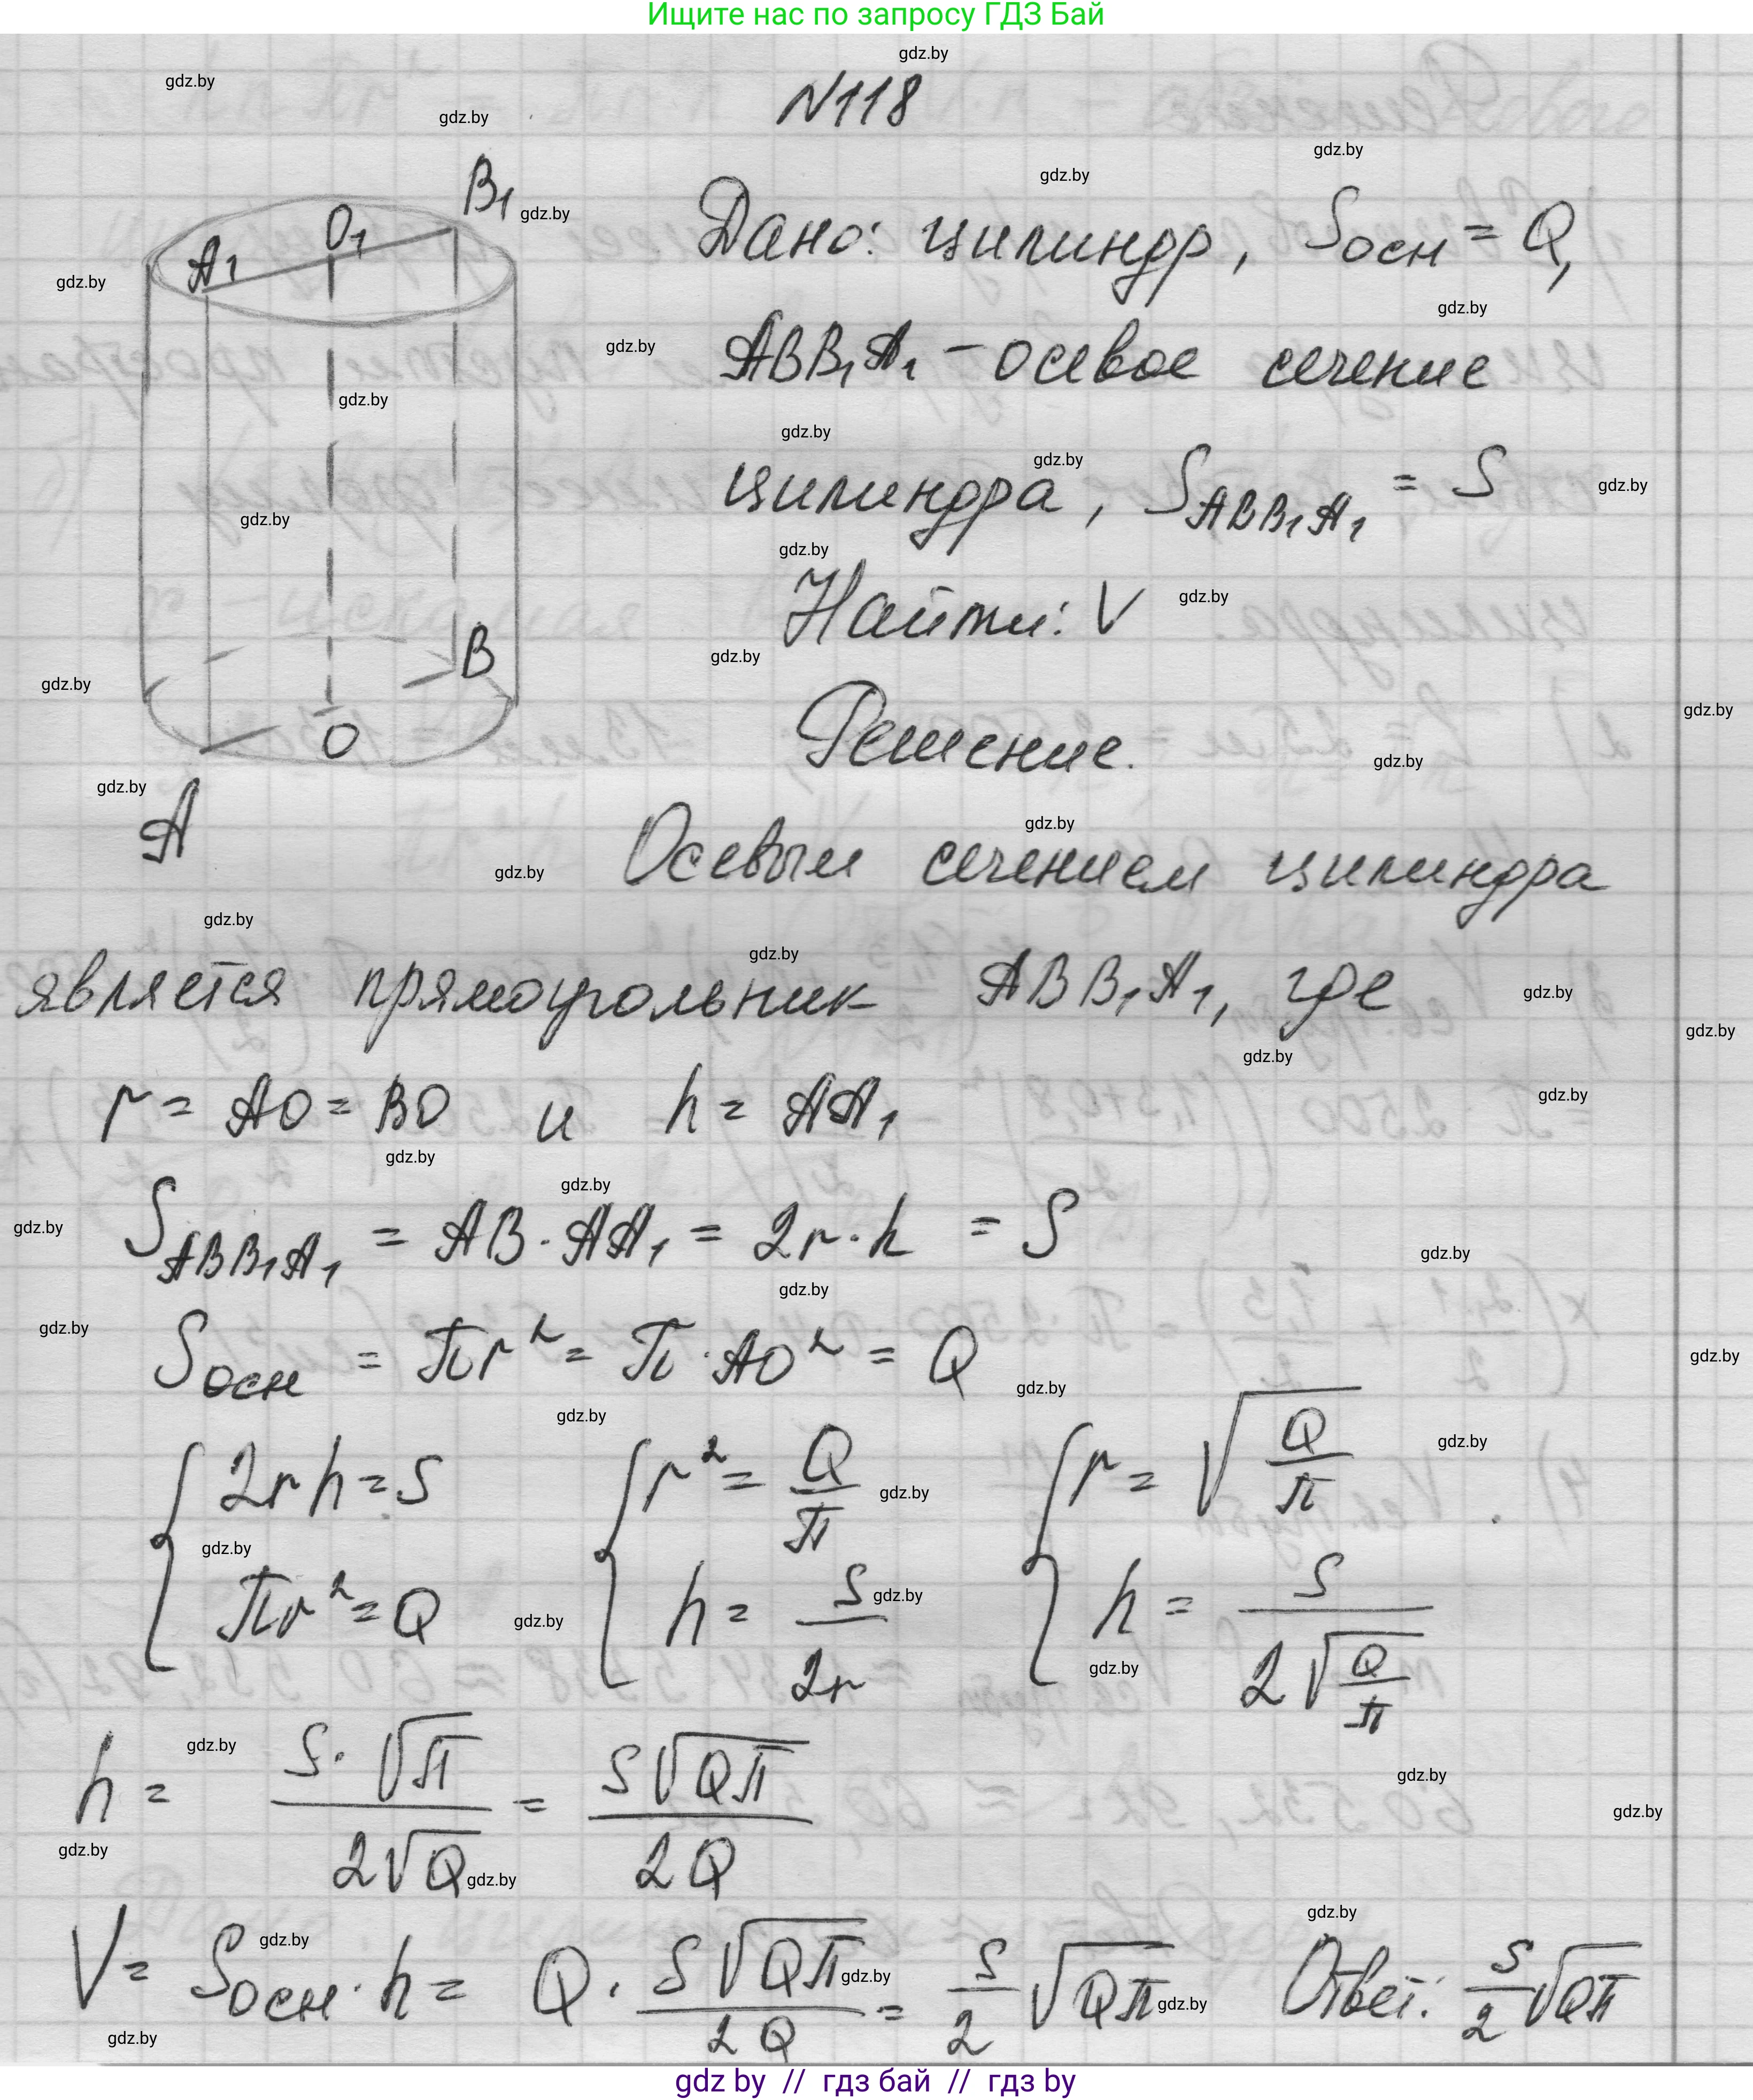 Ищите нас по запросу ГДЗ Бай
N118
Дано: цилиндр, Sосн = Q,
ABB₁A₁ - осевое сечение
цилиндра, S_ABB₁A₁ = S
Найти: V
Решение.
A₁ O₁ B₁
B
O
A
Осевым сечением цилиндра
является прямоугольник ABB₁A₁, где
r = AO = BO и h = AA₁
S_ABB₁A₁ = AB · AA₁ = 2r · h = S
Sосн = πr² = π · AO² = Q
{ 2rh = S { r² = Q/π { r = √(Q/π)
{ πr² = Q { h = S/2r { h = S/(2√(Q/π))
h = (S · √π)/(2√Q) = (S√(Qπ))/(2Q)
V = Sосн · h = Q · (S√(Qπ))/(2Q) = S/2 √(Qπ) Ответ: S/2 √(Qπ)
gdz by // гдз бай // гдз by